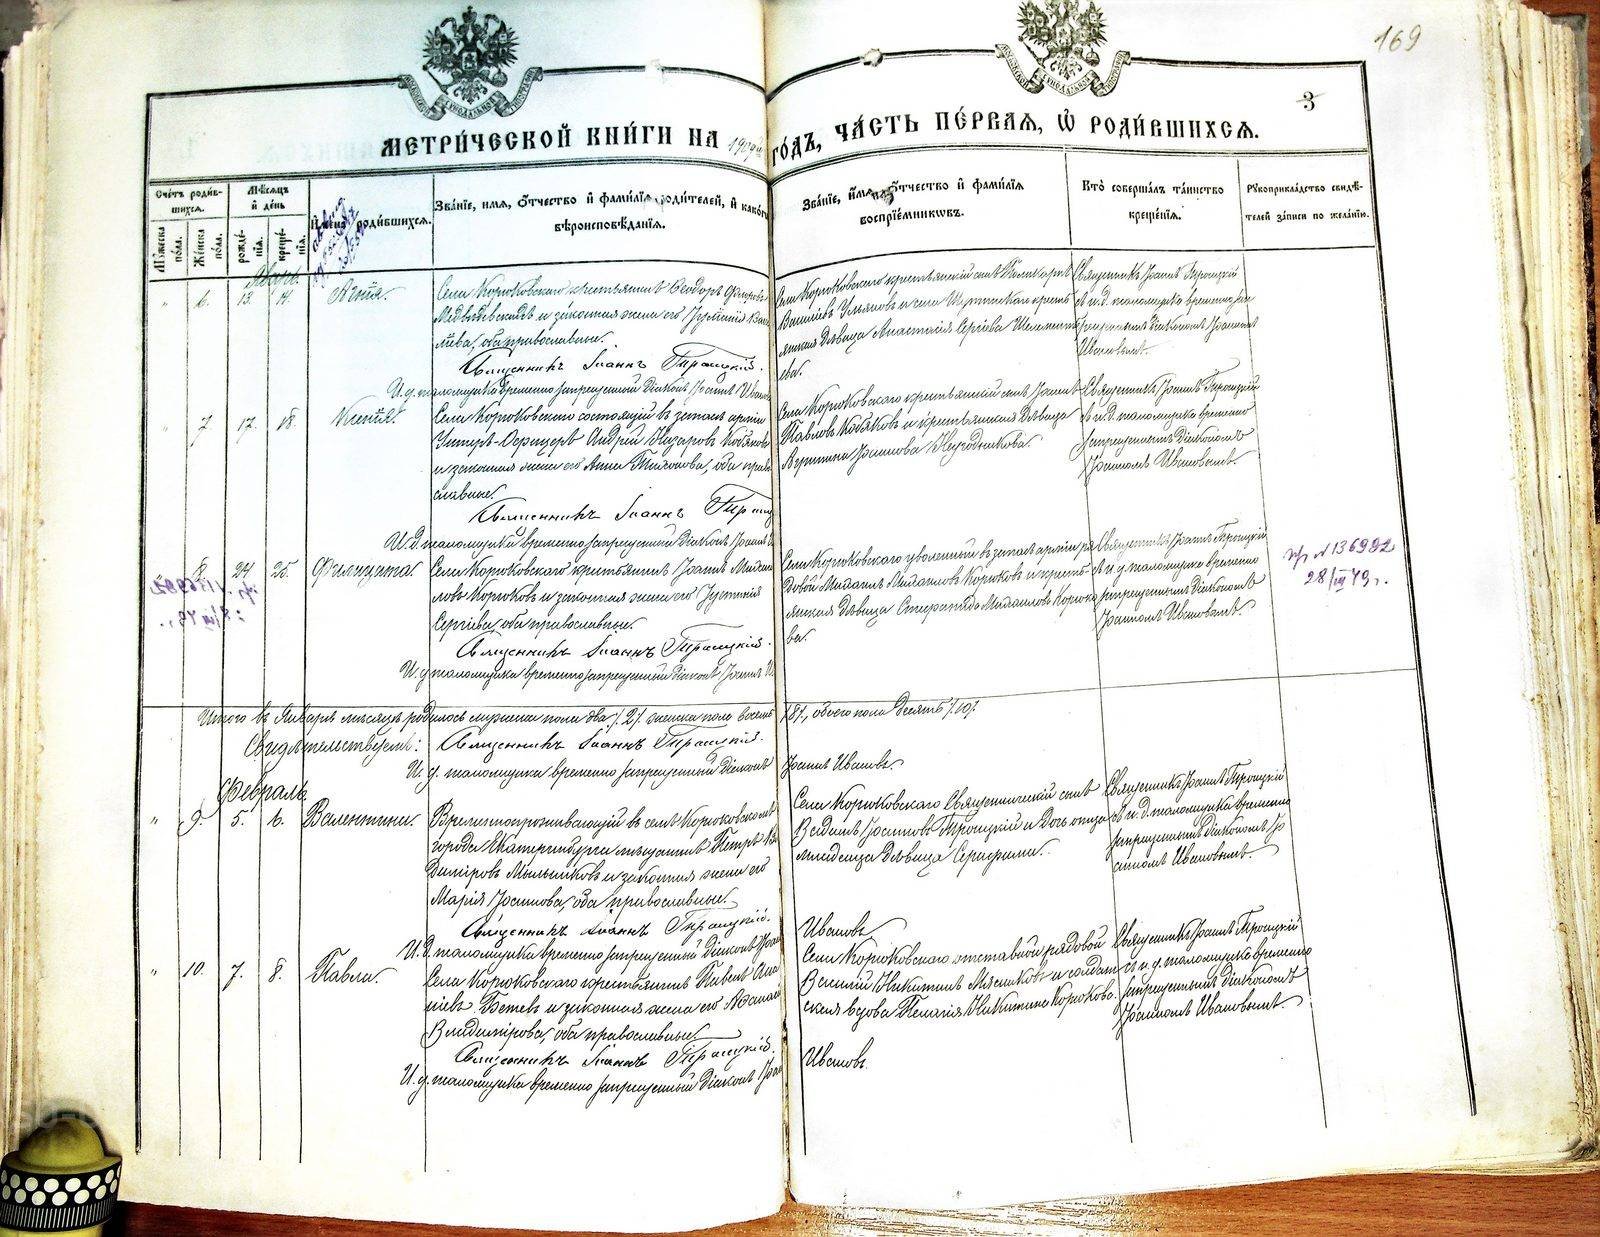 169
3
МЕТРИ́ЧЕСКОЙ КНИ́ГИ НА 1909й ГО́ДЪ, ЧА́СТЬ ПЕ́РВАЯ, Ѿ РОДИ́ВШИХСЯ.
Счетъ роди́в-
шихся.
Мѣ́сяцъ
и́ день
Мꙋжеска по́ла.
Же́нска по́ла.
рожде́-
нїя.
креще́-
нїя.
И҆мена̀ роди́вшихся.
Зва́нїе, и҆́мѧ, ѻ҆́тчество и҆ фами́лїѧ роди́телей, и҆ како́гѡ
вѣроисповѣ́данїѧ.
Зва́нїе, и҆́мѧ, ѻ҆́тчество и҆ фами́лїѧ
воспрїе́мникѡвъ.
Кто̀ соверша́лъ та́инство
креще́нїѧ.
Рꙋкоприкла́дство свидѣ́-
телей за́писи по жела́нїю.
Январь
" 6. 13. 14. Агнія.
Села Корюковскаго крестьянинъ Ѳеодоръ
Медвѣдевскихъ и законная жена его
оба православные.
Священникъ Іоаннъ Троицкій.
И.д. псаломщика временно запрещенный діаконъ Іоаннъ Иванов
Села Корюковскаго крестьянскій сынъ
Василіевъ Ульяновъ и села
дѣвица Анастасія Сергіева
ева.
Священникъ Іоаннъ Троицкій
съ и.д. псаломщика временно за-
прещеннымъ діакономъ Іоанномъ
Ивановымъ.
" 7. 17. 18. Ксенія.
Села Корюковскаго состоящій въ запасѣ арміи
Унтеръ-Офицеръ Андрей Назаровъ Кобяковъ
и законная жена его Анна оба право
славные.
Священникъ Іоаннъ Троиц
И.д. псаломщика временно запрещенный діаконъ Іоаннъ И
Села Корюковскаго крестьянскій сынъ Іоаннъ
Павловъ Кобяковъ и крестьянская дѣвица
Іоаннова
Священникъ Іоаннъ Троицкій
съ и.д. псаломщика временно
запрещеннымъ діакономъ
Іоанномъ Ивановымъ.
" 8. 24. 25. Филицата.
Села Корюковскаго крестьянинъ Іоаннъ Михаи
ловъ Корюковъ и законная жена его Іустинія
Сергіева, оба православные.
Священникъ Іоаннъ Троицкій.
И.д. псаломщика временно запрещенный діаконъ Іоаннъ И.
Села Корюковскаго уволенный въ запасъ арміи ря-
довой Михаилъ Михаиловъ Корюковъ и кресть-
янская дѣвица Михаилова Корюко
ва.
Священникъ Іоаннъ Троицкій
съ и.д. псаломщика временно
запрещеннымъ діакономъ
Іоанномъ Ивановымъ.
№ 136992
28/III 43 г.
Итого въ Январѣ мѣсяцѣ родилось мужеска пола два /2/ женска пола восемь /8/, обоего пола десять /10/.
Свидѣтельствуемъ: Священникъ Іоаннъ Троицкій.
И.д. псаломщика временно запрещенный діаконъ Іоаннъ Ивановъ.
Февраль
" 9. 5. 6. Валентина.
Временнопроживающій въ селѣ Корюковскомъ
города Екатеринбурга мѣщанинъ Петръ
Мыльниковъ и законная жена его
Марія Іоаннова, оба православные.
Священникъ Іоаннъ Троицкій.
И.д. псаломщика временно запрещенный діаконъ Іоан
Ивановъ.
Села Корюковскаго Священническій сынъ
Вадимъ Іоанновъ Троицкій и дочь отца
дѣвица Серафима.
Священникъ Іоаннъ Троицкій
съ и.д. псаломщика временно
запрещеннымъ діакономъ Іо-
анномъ Ивановымъ.
" 10. 7. 8. Павла.
Села Корюковскаго крестьянинъ Павелъ
и законная жена его
Владимірова, оба православные.
Священникъ Іоаннъ Троицкій.
И.д. псаломщика временно запрещенный діаконъ Іоан
Ивановъ.
Села Корюковскаго отставной рядовой
Василій Никитинъ Мясниковъ и солдат-
ская вдова Пелагія Никитина Корюкова.
Священникъ Іоаннъ Троицкій
съ и.д. псаломщика временно
запрещеннымъ діакономъ
Іоанномъ Ивановымъ.